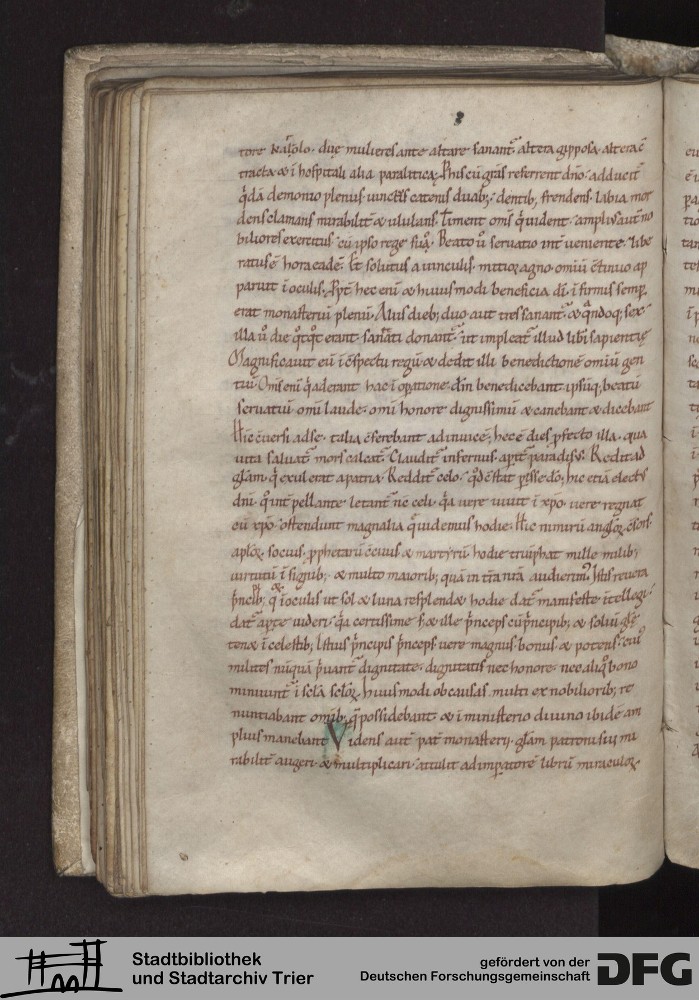 tore karolo. duę mulieres ante altare sanant᷑. altera gypposa. altera c̄
tracta & ī hospitali alia paralitica. Phis cū gr̄as referrent dn̄o. adducit᷑
q̇dā demonio plenus. uinctus catenis duab;. dentib; frendens. labia mor
dens clamans mirabilit̄ & ululans. Timent om̄s q̇ uident. amplius aut̄ no
biliores exercitus. cū ipso rege suo. Beato u̇ seruatio int̄ueniente. libe
ratus ē hora eadē. Et solutus a uinculis. mitior agno. omiū c̄tinuo ap
paruit ī oculis. Ppt̄ hec eni & huiusmodi beneficia dī. ī firmis semꝑ
erat monasteriū plenū. Aliis dieb; duo aut tres sanant᷑. & q̇ndoq; sex.
illa u̇ die q̇tq̇t erant sanitati donant᷑. ut impleat᷑ illud libri sapientię
Magnificauit eū ī c̄spectu regū & dedit illi benedictionē omiū gen
tiū. Om̄s eni q̇ aderant hac ī oꝑatione dn̄m benedicebant ipsūq; beatū
seruatiū omi laude. omi honore dignissimū & canebant & dicebant
Hic c̄uersi ad se. talia c̄ferebant ad inuicē. hec ē dies ꝓfecto illa. qua
uita saluat᷑ mors calcat᷑. Claudit᷑ infernus. aꝑit᷑ paradisus. Redit ad
glām q̇ exulerat a patria. Reddit᷑ celo. q̇d c̄stat ꝑisse dō. hic etiā electus
dn̄i. q̇ int̄pellante letant᷑ nc̄ celi. q̇a uere uiuit ī xp̄o. uere regnat
cū xp̄o. ostendunt magnalia q̇ uidemus hodie. Hic nimirū anglōꝝ c̄sors.
aplōꝝ. socius. ꝓphetarū c̄ciuus & martyrū hodie triūphat mille milib;
uirtutū ī signib;. & multo maiorib; quā in tr̄a nr̄a audierim᷒. Istis reuera
ṗncib; q̇ ī oculis ut sol & luna resplendē hodie dat᷑ manifeste ītellegi.
dat᷑ apte uideri. q̇a certissime s̄ & ille ṗnceps cū ṗncipib; &
tenā ī celestib; Istius ṗncipis ṗnceps uere magnus. bonus & potens. cui᷒
milites nūquā ṗuant᷑ dignitate. dignitatis nec honore. nec aliq̇ bono
minuunt᷑ ī sclā sclōꝝ. huiusmodi ob causas multi ex nobiliorib; re
nuntiabant omib; q̇ possidebant & ī ministerio diuino ibidē am
plius manebant. Videns aut̄ pat̄ monasterii. glām patroni sui mi
rabilit̄ augeri. & multiplicari. attulit ad imꝑatorē librū miraculoꝝ
Stadtbibliothek
und Stadtarchiv Trier
gefördert von der
Deutschen Forschungsgemeinschaft
DFG